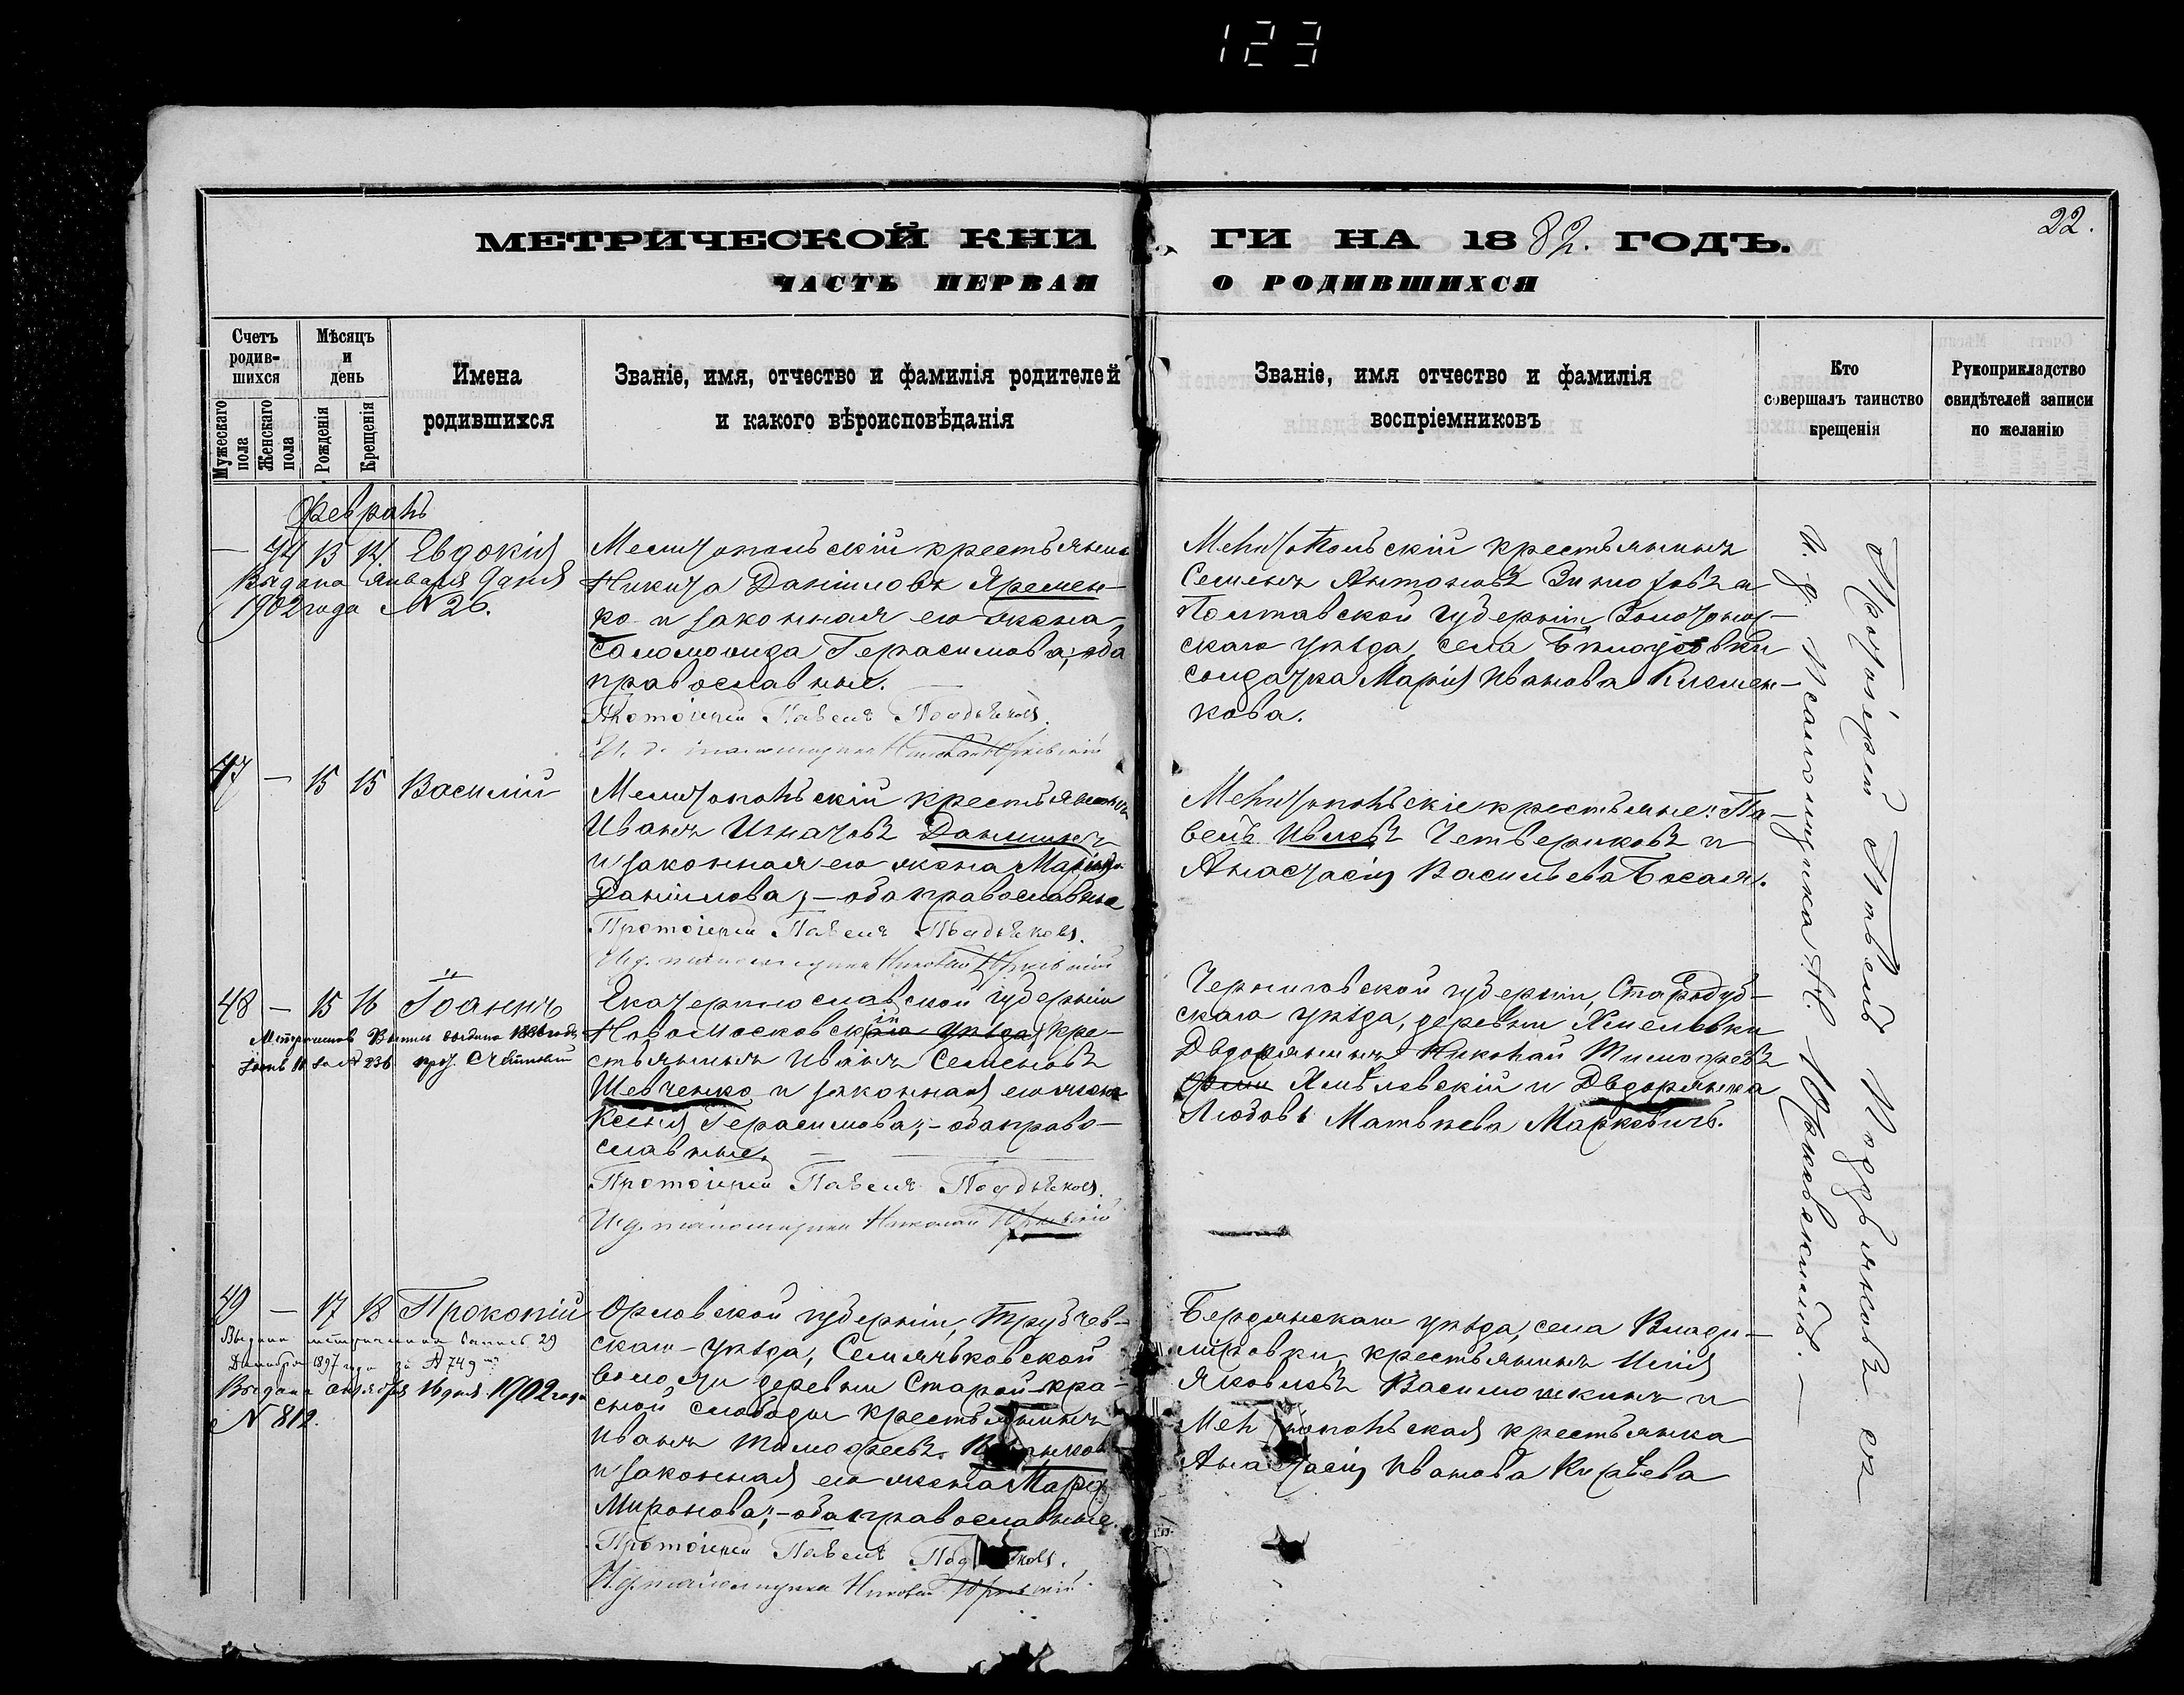 123
22.
МЕТРИЧЕСКОЙ КНИ ГИ НА 1882. ГОДЪ.
ЧАСТЬ ПЕРВАЯ О РОДИВШИХСЯ
Счетъ родив-
шихся
Мужескаго пола
Женскаго пола
Мѣсяцъ и день
Рожденія
Крещенія
Имена
родившихся
Званіе, имя, отчество и фамилія родителей
и какого вѣроисповѣданія
Званіе, имя отчество и фамилія
воспріемниковъ
Кто
совершалъ таинство
крещенія
Рукоприкладство
свидѣтелей записи
по желанію
Февраль
— 44 13 14 Евдокія
Выдана Января 9 дня
1902 года N 26.
Мелитопольскій крестьянинъ
Никита Даніиловъ Яремен-
ко и законная его жена
Соломонида Герасимова; оба
православные.
Протоіерей Павелъ Подъяковъ.
И. д. псаломщика Николай Юркевскій
Мелитопольскій крестьянинъ
Семенъ Антоновъ и
Полтавской губерніи Золотонош-
скаго уѣзда, села
солдатка Марія Иванова Климен-
кова.
47 — 15 15 Василій
Мелитопольскій крестьянинъ
Иванъ Игнатовъ Даншинъ
и законная его жена Марія
Даніилова; — оба православные
Протоіерей Павелъ Подъяковъ.
И. д. псаломщика Николай Юркевскій
Мелитопольскіе крестьяне: Па-
велъ Ивлевъ Четвериковъ и
Анастасія Васильева Босая.
48 — 15 16 Іоаннъ
Метрическая Выпись выдана
236
Екатеринославской губерніи
Новомосковскій кре-
стьянинъ Иванъ Семеновъ
Шевченко и законная его жена
Ксенія Герасимова; — оба право-
славные.
Протоіерей Павелъ Подъяковъ.
И. д. псаломщика Николай Юркевскій
Черниговской губерніи, Стародуб-
скаго уѣзда, деревни Хмелевки
Дворянинъ Николай Тимофеевъ
Хмѣлевскій и Дворянка
Любовь Матвѣева Маркевичъ.
49 — 17 18 Прокопій
Выдана метрическая запись 29
Декабря 1897 года за N 749
Выдана октября 16 дня 1902 года
N 812.
Орловской губерніи, Трубчев-
скаго уѣзда, Семячковской
волости деревни Старой-Кра-
сной слободы крестьянинъ
Иванъ Тимофеевъ
и законная его жена Марія
Миронова; — оба православные.
Протоіерей Павелъ
И. д. псаломщика Николай Юркевскій
Бердянскаго уѣзда, села Влади-
міровки, крестьянинъ Илія
Яковлевъ Василюшкинъ и
Мелитопольская крестьянка
Анастасія Иванова
Протоіерей Павелъ Подъяковъ съ
и. д. псаломщика Н. Юркевскимъ. —